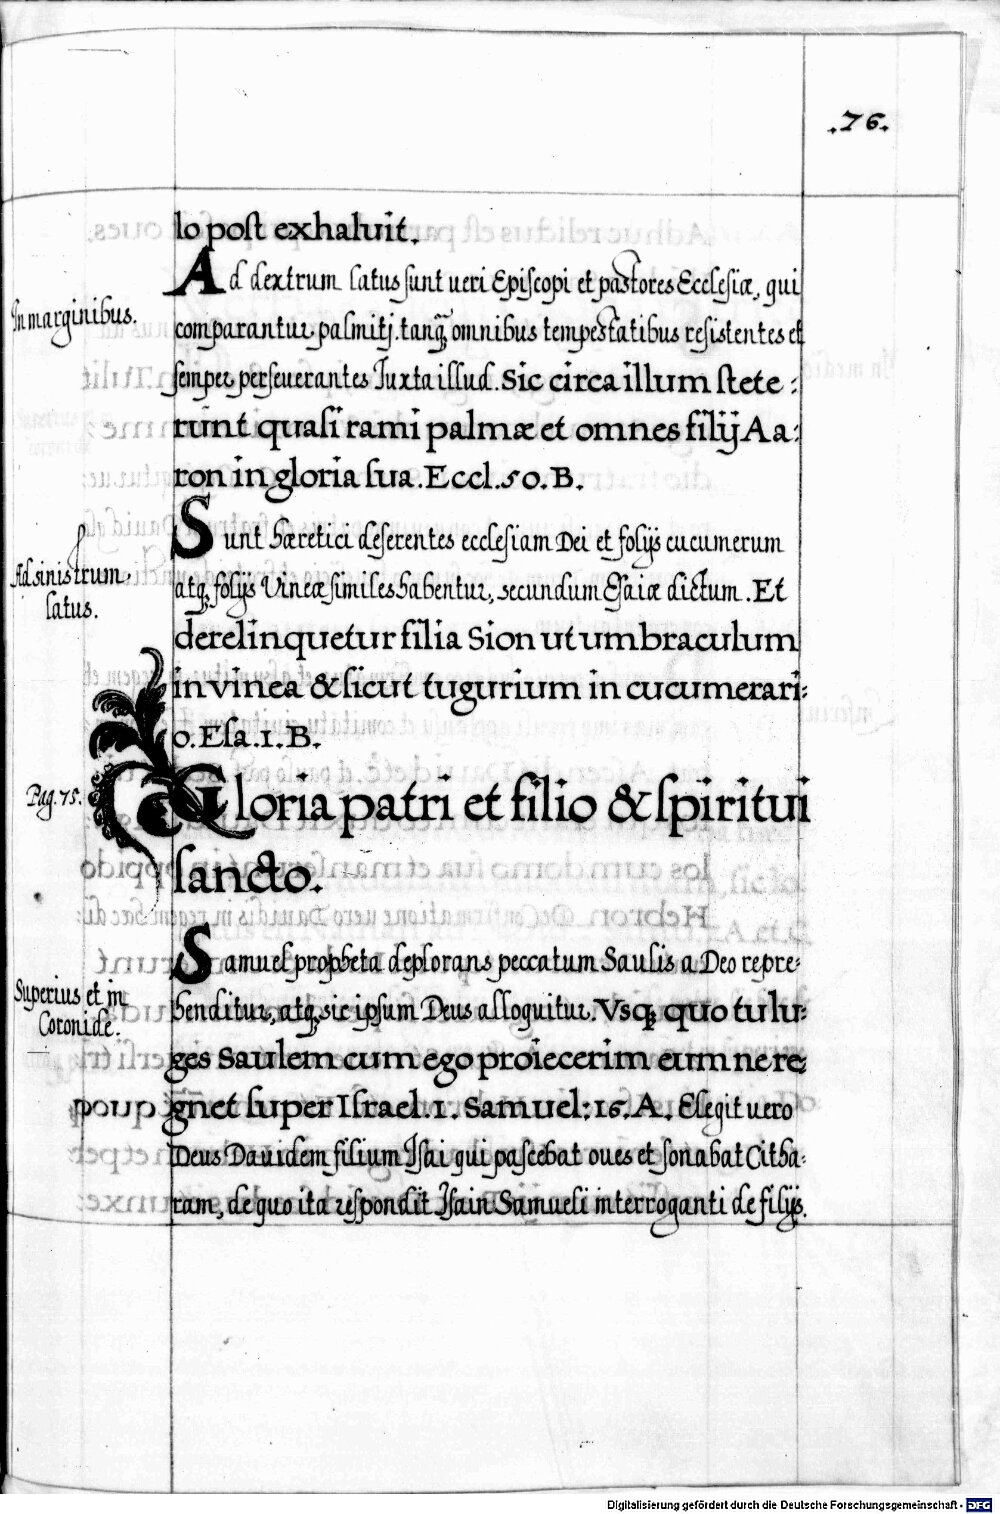 .76.
lo post exhaluit.
In marginibus.
Ad dextrum latus sunt ueri Episcopi et pastores Ecclesiæ, qui
comparantur palmitj. tanq̃ omnibus tempestatibus resistentes et
semper perseuerantes Juxta illud. Sic circa illum stete:
runt quasi rami palmæ et omnes filij Aa:
ron in gloria sua. Eccl. 50. B.
Ad sinistrum
latus.
Sunt hæretici deserentes ecclesiam Dei et folijs cucumerum
atq; folijs Vineæ similes habentur, secundum Esaiæ dictum. Et
derelinquetur filia Sion ut umbraculum
in vinea & sicut tugurium in cucumerari:
o. Esa. 1. B.
Pag. 75.
Gloria patri et filio & spiritui
sancto.
Superius et in
Coronide.
Samuel propheta deplorans peccatum Saulis a Deo repre:
henditur, atq; sic ipsum Deus alloquitur. Vsq; quo tu lu:
ges Saulem cum ego proiecerim eum ne re:
gnet super Israel. 1. Samuel: 16. A. Elegit uero
Deus Dauidem filium Isai qui pascebat oues et sonabat Citha:
ram, de quo ita respondit Isain Samueli interroganti de filijs.
Digitalisierung gefördert durch die Deutsche Forschungsgemeinschaft - DFG